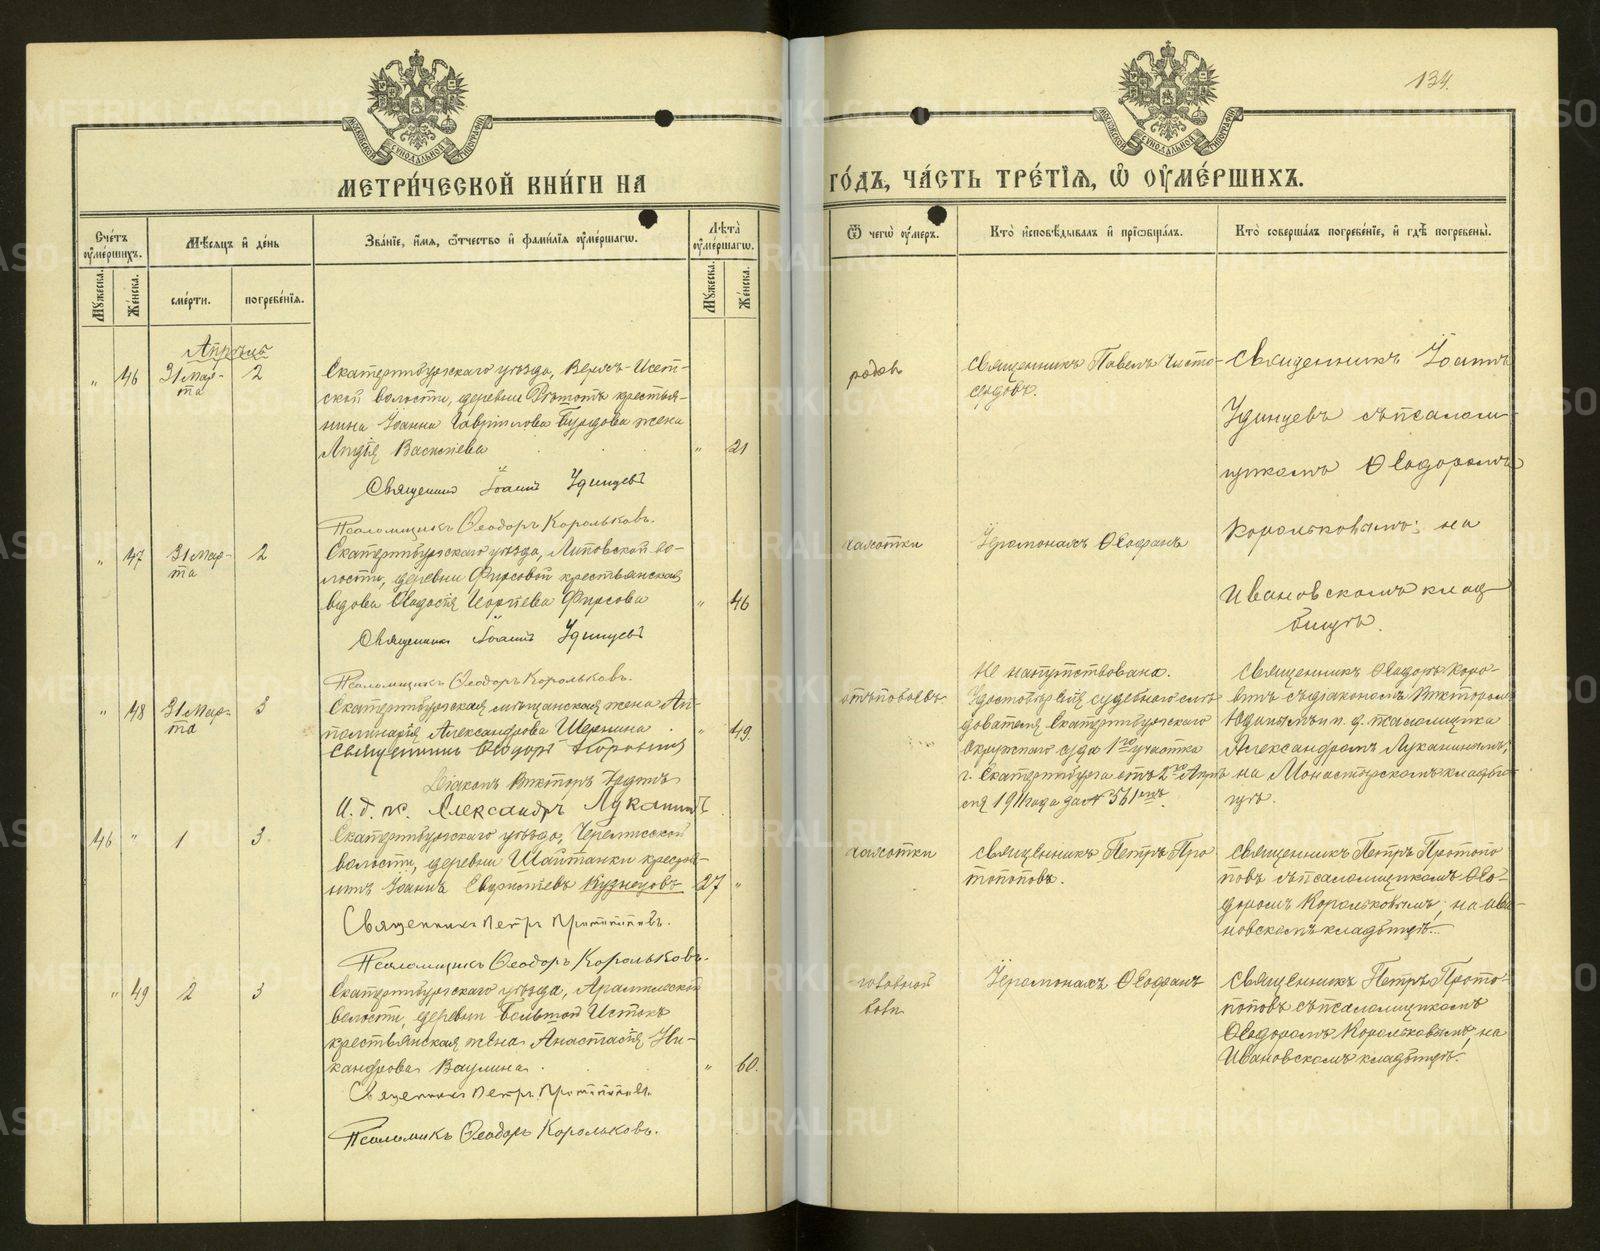 134.
МОСКОВСКОЙ СѴНОДАЛЬНОЙ ТИПОГРАФІИ
МОСКОВСКОЙ СѴНОДАЛЬНОЙ ТИПОГРАФІИ
МЕТРИ́ЧЕСКОЙ КНИ́ГИ НА
ГО́ДЪ, ЧА́СТЬ ТРЕ́ТІЯ, Ѽ ОУ҆МЕ́РШИХЪ.
Сче́тъ оу҆ме́ршихъ.
Мѣ́сяцъ и҆ де́нь
Зва́нїе, и҆́мя, ѻ҆́тчество и҆ фами́лїя оу҆ме́ршагѡ.
Лѣ́та оу҆ме́ршагѡ.
Мꙋ́жеска.
Же́нска.
сме́рти.
погребе́нїя.
Мꙋ́жеска.
Же́нска.
Ѿ чегѡ̀ оу҆́меръ.
Кто̀ и҆сповѣ́дывалъ и҆ прїѡбща́лъ.
Кто̀ соверша́лъ погребе́нїе, и҆ гдѣ̀ погребены̀.
Апрѣль
„ 46 31 Мар-
та
2
Екатеринбургскаго уѣзда, Верхъ-Исет-
ской волости, деревни Рѣшотъ крестья-
нина Іоанна Гавріилова Бурдова жена
Лидія Васильева
„ 21
Священникъ Іоаннъ Удинцевъ
Псаломщикъ Ѳеодоръ Корольковъ.
родовъ
Священникъ Павелъ Чисто-
сердовъ.
Священникъ Іоаннъ
Удинцевъ съ псалом-
щикомъ Ѳеодоромъ
Корольковымъ; на
Ивановскомъ клад-
бищѣ.
„ 47 31 Мар-
та
2
Екатеринбургскаго уѣзда, Липовской во-
лости, деревни Фирсовой крестьянская
вдова Ѳеодосія Фирсова
„ 46
Священникъ Іоаннъ Удинцевъ
Псаломщикъ Ѳеодоръ Корольковъ.
чахотки
Іеромонахъ Ѳеофанъ
„ 48 31 Мар-
та
3
Екатеринбургская мѣщанская жена Ап-
полинарія Александрова
„ 49.
Священникъ Ѳеодоръ Коровинъ
Діаконъ Викторъ Юдинъ
И. д. пс. Александръ Луканинъ
Не напутствована.
Удостовѣреніе судебного слѣ-
дователя Екатеринбургскаго
Окружнаго суда 1го участка
г. Екатеринбурга отъ 2го Апрѣ-
ля 1911 года за № 561мъ.
Священникъ Ѳеодоръ Коро-
винъ съ діакономъ Викторомъ
Юдинымъ и и. д. псаломщика
Александромъ Луканинымъ;
на Монастырскомъ кладби-
щѣ.
46 „ 1 3.
Екатеринбургскаго уѣзда, Черемисской
волости, деревни Шайтанки крестья-
нинъ Іоаннъ Кузнецовъ
27 „
Священникъ Петръ Протопоповъ.
Псаломщикъ Ѳеодоръ Корольковъ.
чахотки
Священникъ Петръ Про-
топоповъ.
Священникъ Петръ Протопо-
повъ съ псаломщикомъ Ѳео-
доромъ Корольковымъ; на Ива-
новскомъ кладбищѣ.
„ 49 2 3
Екатеринбургскаго уѣзда, Арамильской
волости, деревни Большой Истокъ
крестьянская жена Анастасія Ни-
кандрова Ваулина.
„ 60.
Священникъ Петръ Протопоповъ.
Псаломщикъ Ѳеодоръ Корольковъ.
головной
боли
Іеромонахъ Ѳеофанъ
Священникъ Петръ Прото-
поповъ съ псаломщикомъ
Ѳеодоромъ Корольковымъ; на
Ивановскомъ кладбищѣ.
METRIKI.GASO-URAL.RU